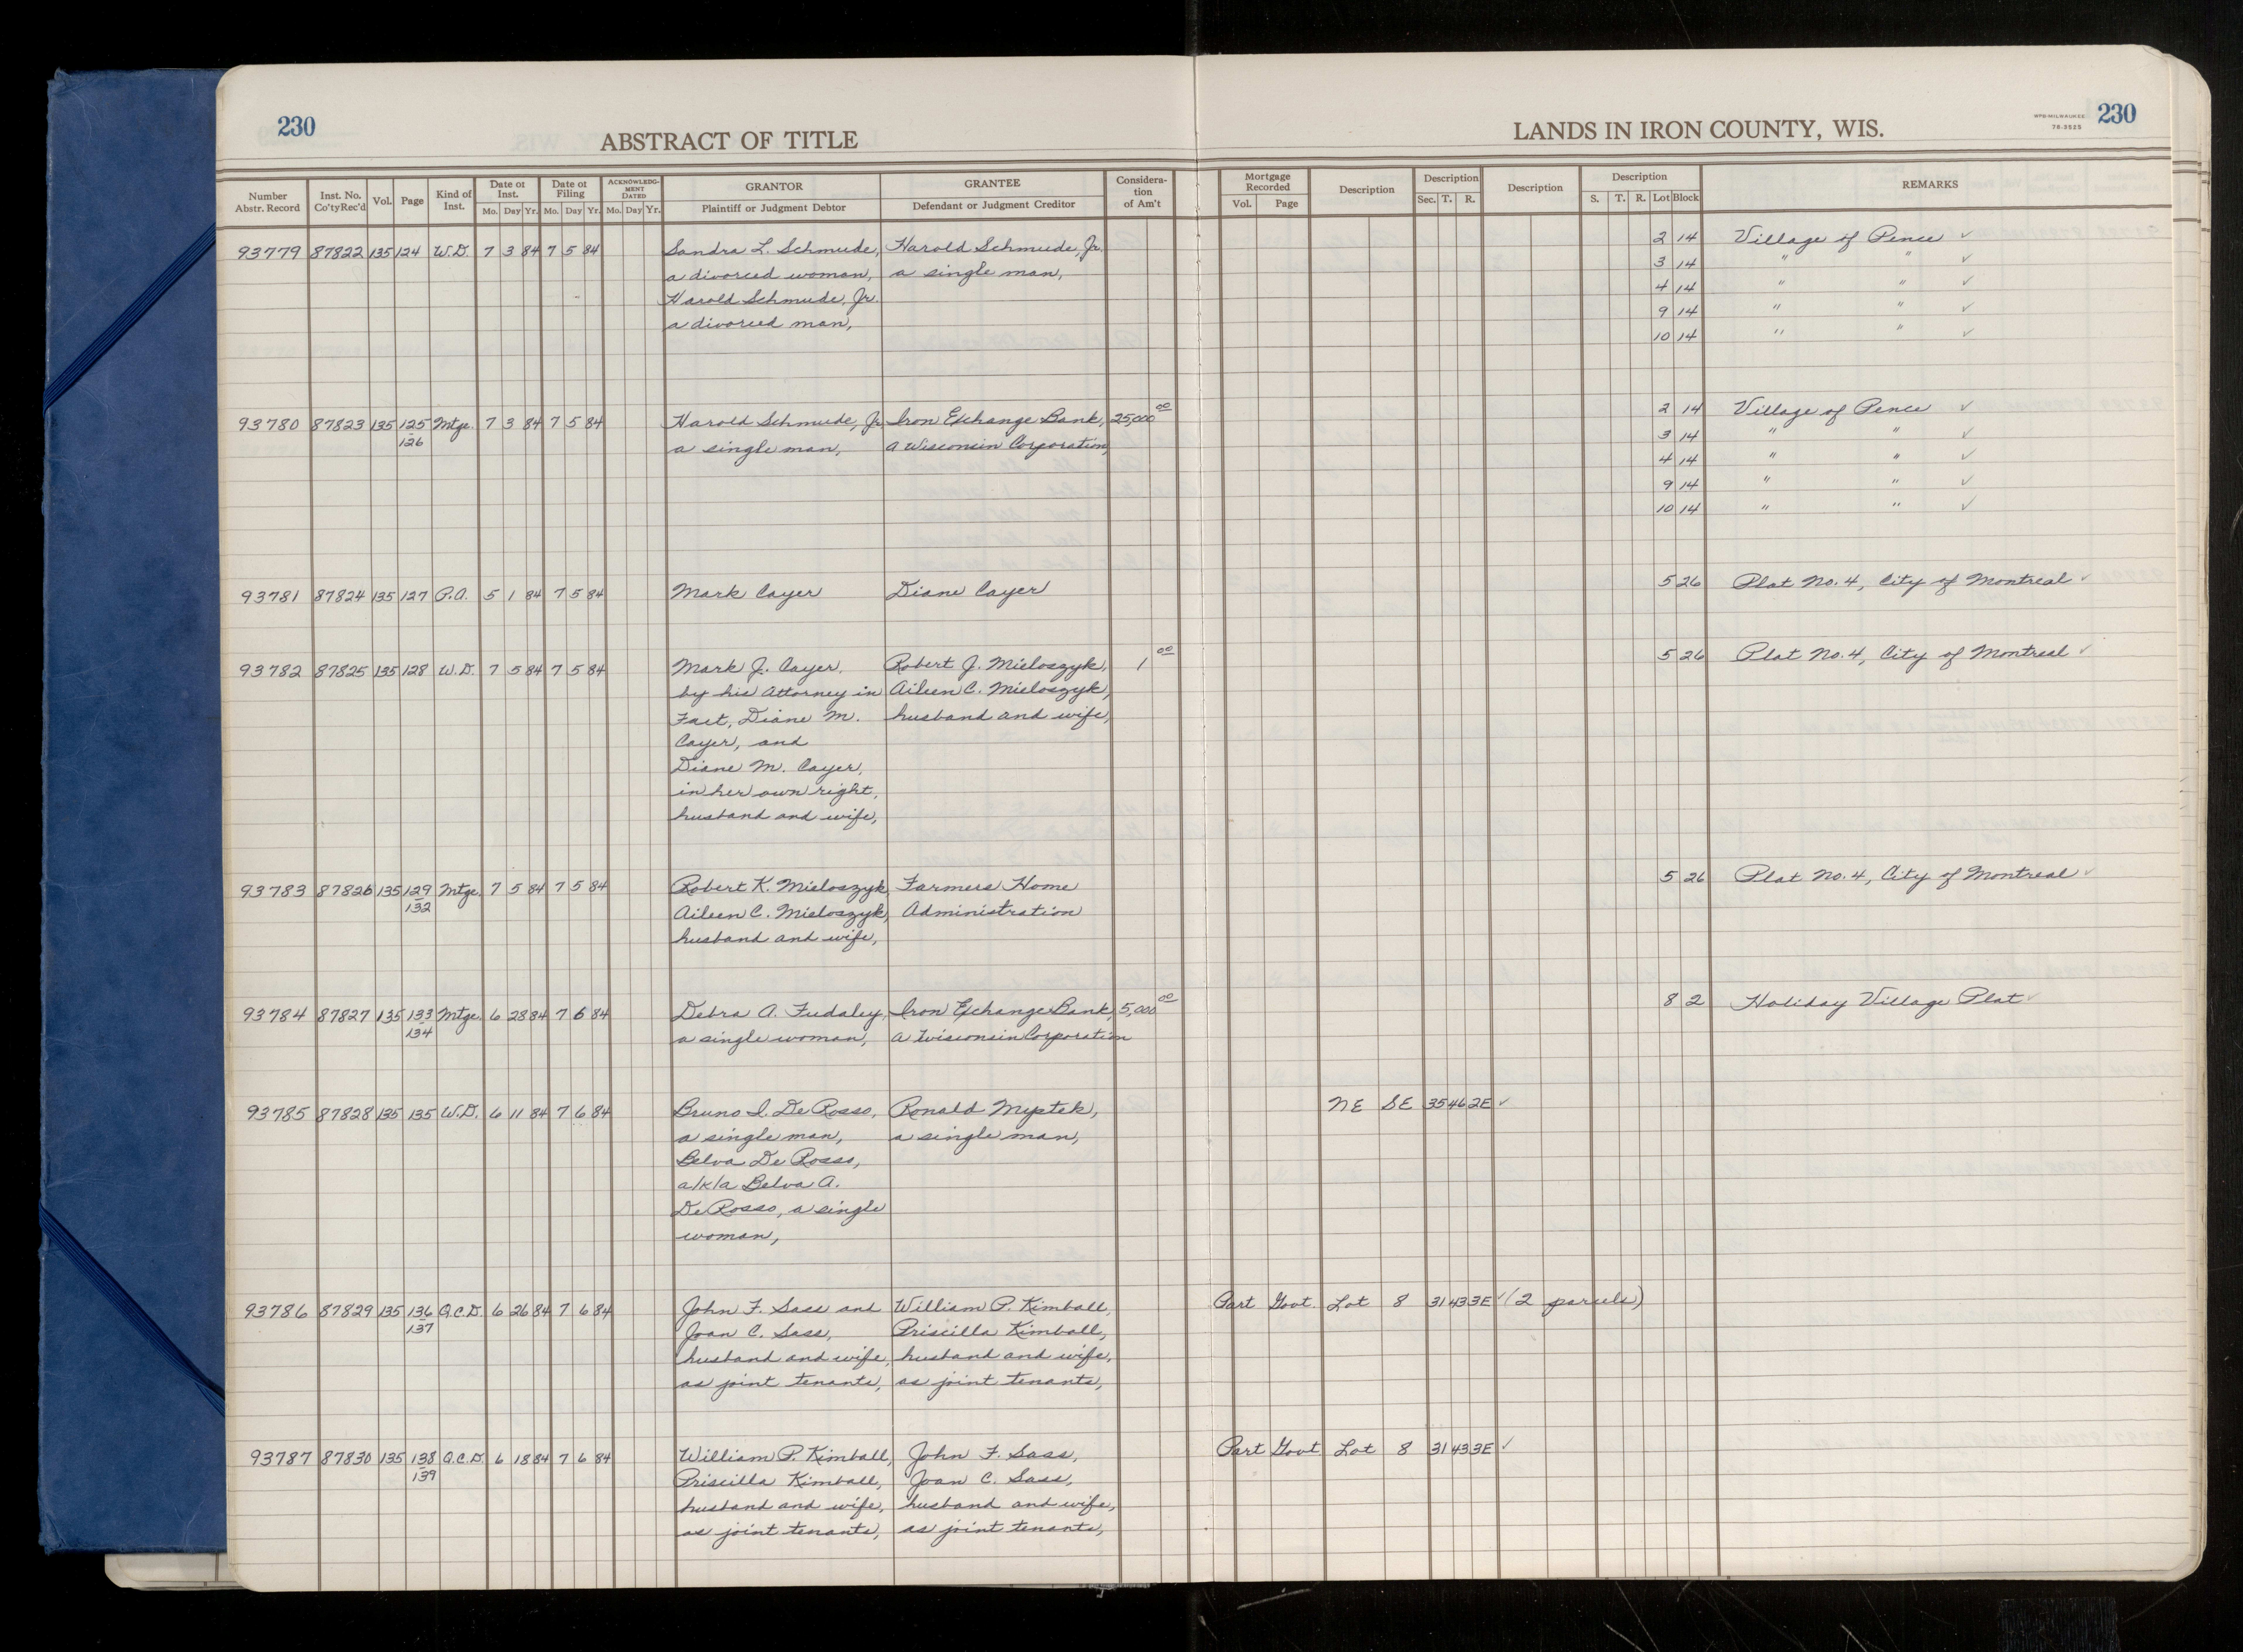 230
ABSTRACT OF TITLE
LANDS IN IRON COUNTY, WIS.
WPB-MILWAUKEE
78-3525
230
Number Abstr. Record Inst. No. Co'ty Rec'd Vol. Page Kind of Inst. Date of Inst. Mo. Day Yr. Date of Filing Mo. Day Yr. ACKNOWLEDGMENT DATED Mo. Day Yr. GRANTOR Plaintiff or Judgment Debtor GRANTEE Defendant or Judgment Creditor Consideration of Am't Mortgage Recorded Vol. Page Description Description Sec. T. R. Description Description S. T. R. Lot Block REMARKS
93779 87822 135 124 W.D. 7 3 84 7 5 84 Sandra L. Schmude, Harold Schmude, Jr. 2 14 Village of Pence ✓
a divorced woman, a single man, 3 14 " " ✓
Harold Schmude, Jr. 4 14 " " ✓
a divorced man, 9 14 " " ✓
10 14 " " ✓
93780 87823 135 125 Mtge. 7 3 84 7 5 84 Harold Schmude, Jr. Iron Exchange Bank, 25,000 00 2 14 Village of Pence ✓
126 a single man, a Wisconsin Corporation, 3 14 " " ✓
4 14 " " ✓
9 14 " " ✓
10 14 " " ✓
93781 87824 135 127 P.A. 5 1 84 7 5 84 Mark Cayer Diane Cayer 5 26 Plat No. 4, City of Montreal ✓
93782 87825 135 128 W.D. 7 5 84 7 5 84 Mark J. Cayer, Robert J. Mieloszyk, 1 00 5 26 Plat No. 4, City of Montreal ✓
by his Attorney in Aileen C. Mieloszyk,
Fact, Diane M. husband and wife,
Cayer, and
Diane M. Cayer,
in her own right,
husband and wife,
93783 87826 135 129 Mtge. 7 5 84 7 5 84 Robert K. Mieloszyk, Farmers Home 5 26 Plat No. 4, City of Montreal ✓
132 Aileen C. Mieloszyk, Administration
husband and wife,
93784 87827 135 133 Mtge. 6 28 84 7 6 84 Debra A. Fudaley, Iron Exchange Bank, 5,000 00 8 2 Holiday Village Plat ✓
134 a single woman, a Wisconsin Corporation
93785 87828 135 135 W.D. 6 11 84 7 6 84 Bruno I. De Rosso, Ronald Mystek, NE SE 35 46 2E ✓
a single man, a single man,
Belva De Rosso,
a/k/a Belva A.
De Rosso, a single
woman,
93786 87829 135 136 Q.C.D. 6 26 84 7 6 84 John F. Sass and William P. Kimball, Part Govt. Lot 8 31 43 3E ✓ (2 parcels)
137 Joan C. Sass, Priscilla Kimball,
husband and wife, husband and wife,
as joint tenants, as joint tenants,
93787 87830 135 138 Q.C.D. 6 18 84 7 6 84 William P. Kimball, John F. Sass, Part Govt. Lot 8 31 43 3E ✓
139 Priscilla Kimball, Joan C. Sass,
husband and wife, husband and wife,
as joint tenants, as joint tenants,